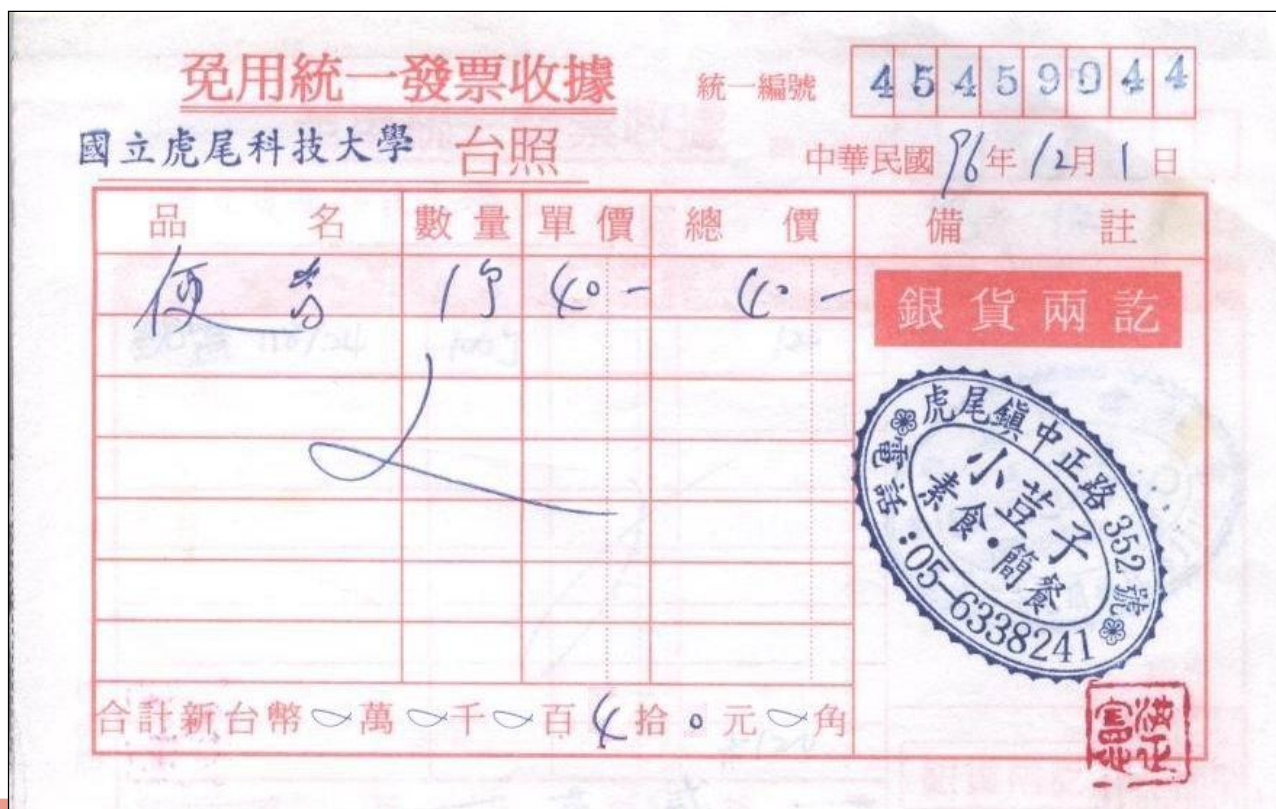 免用統一發票收據
統一編號 45459944
國立虎尾科技大學 台照
中華民國 96年 12月 1日
品名 數量 單價 總價 備註
便當 1 40- 40-
銀貨兩訖
虎尾鎮中正路352號
小荳子
素食·簡餐
電話:05-6338241
合計新台幣 0萬 0千 0百 4拾 0元 0角